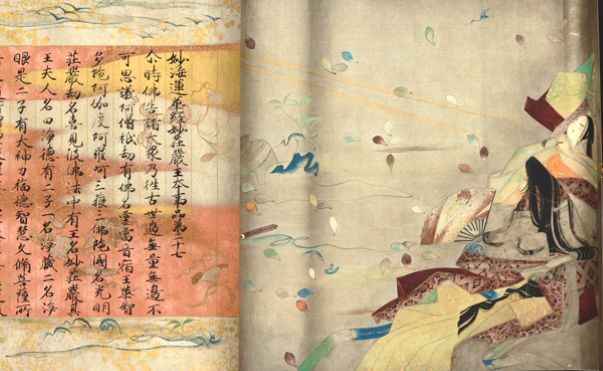 妙法蓮華經妙莊嚴王本事品第二十七
尒時佛告諸大衆乃往古世過無量無邊不
可思議阿僧祇劫有佛名雲雷音宿王華智
多陀阿伽度阿羅訶三藐三佛陀國名光明
莊嚴劫名喜見彼佛法中有王名妙莊嚴其
王夫人名曰淨德有二子一名淨藏二名淨
眼是二子有大神力福德智慧久脩菩薩所